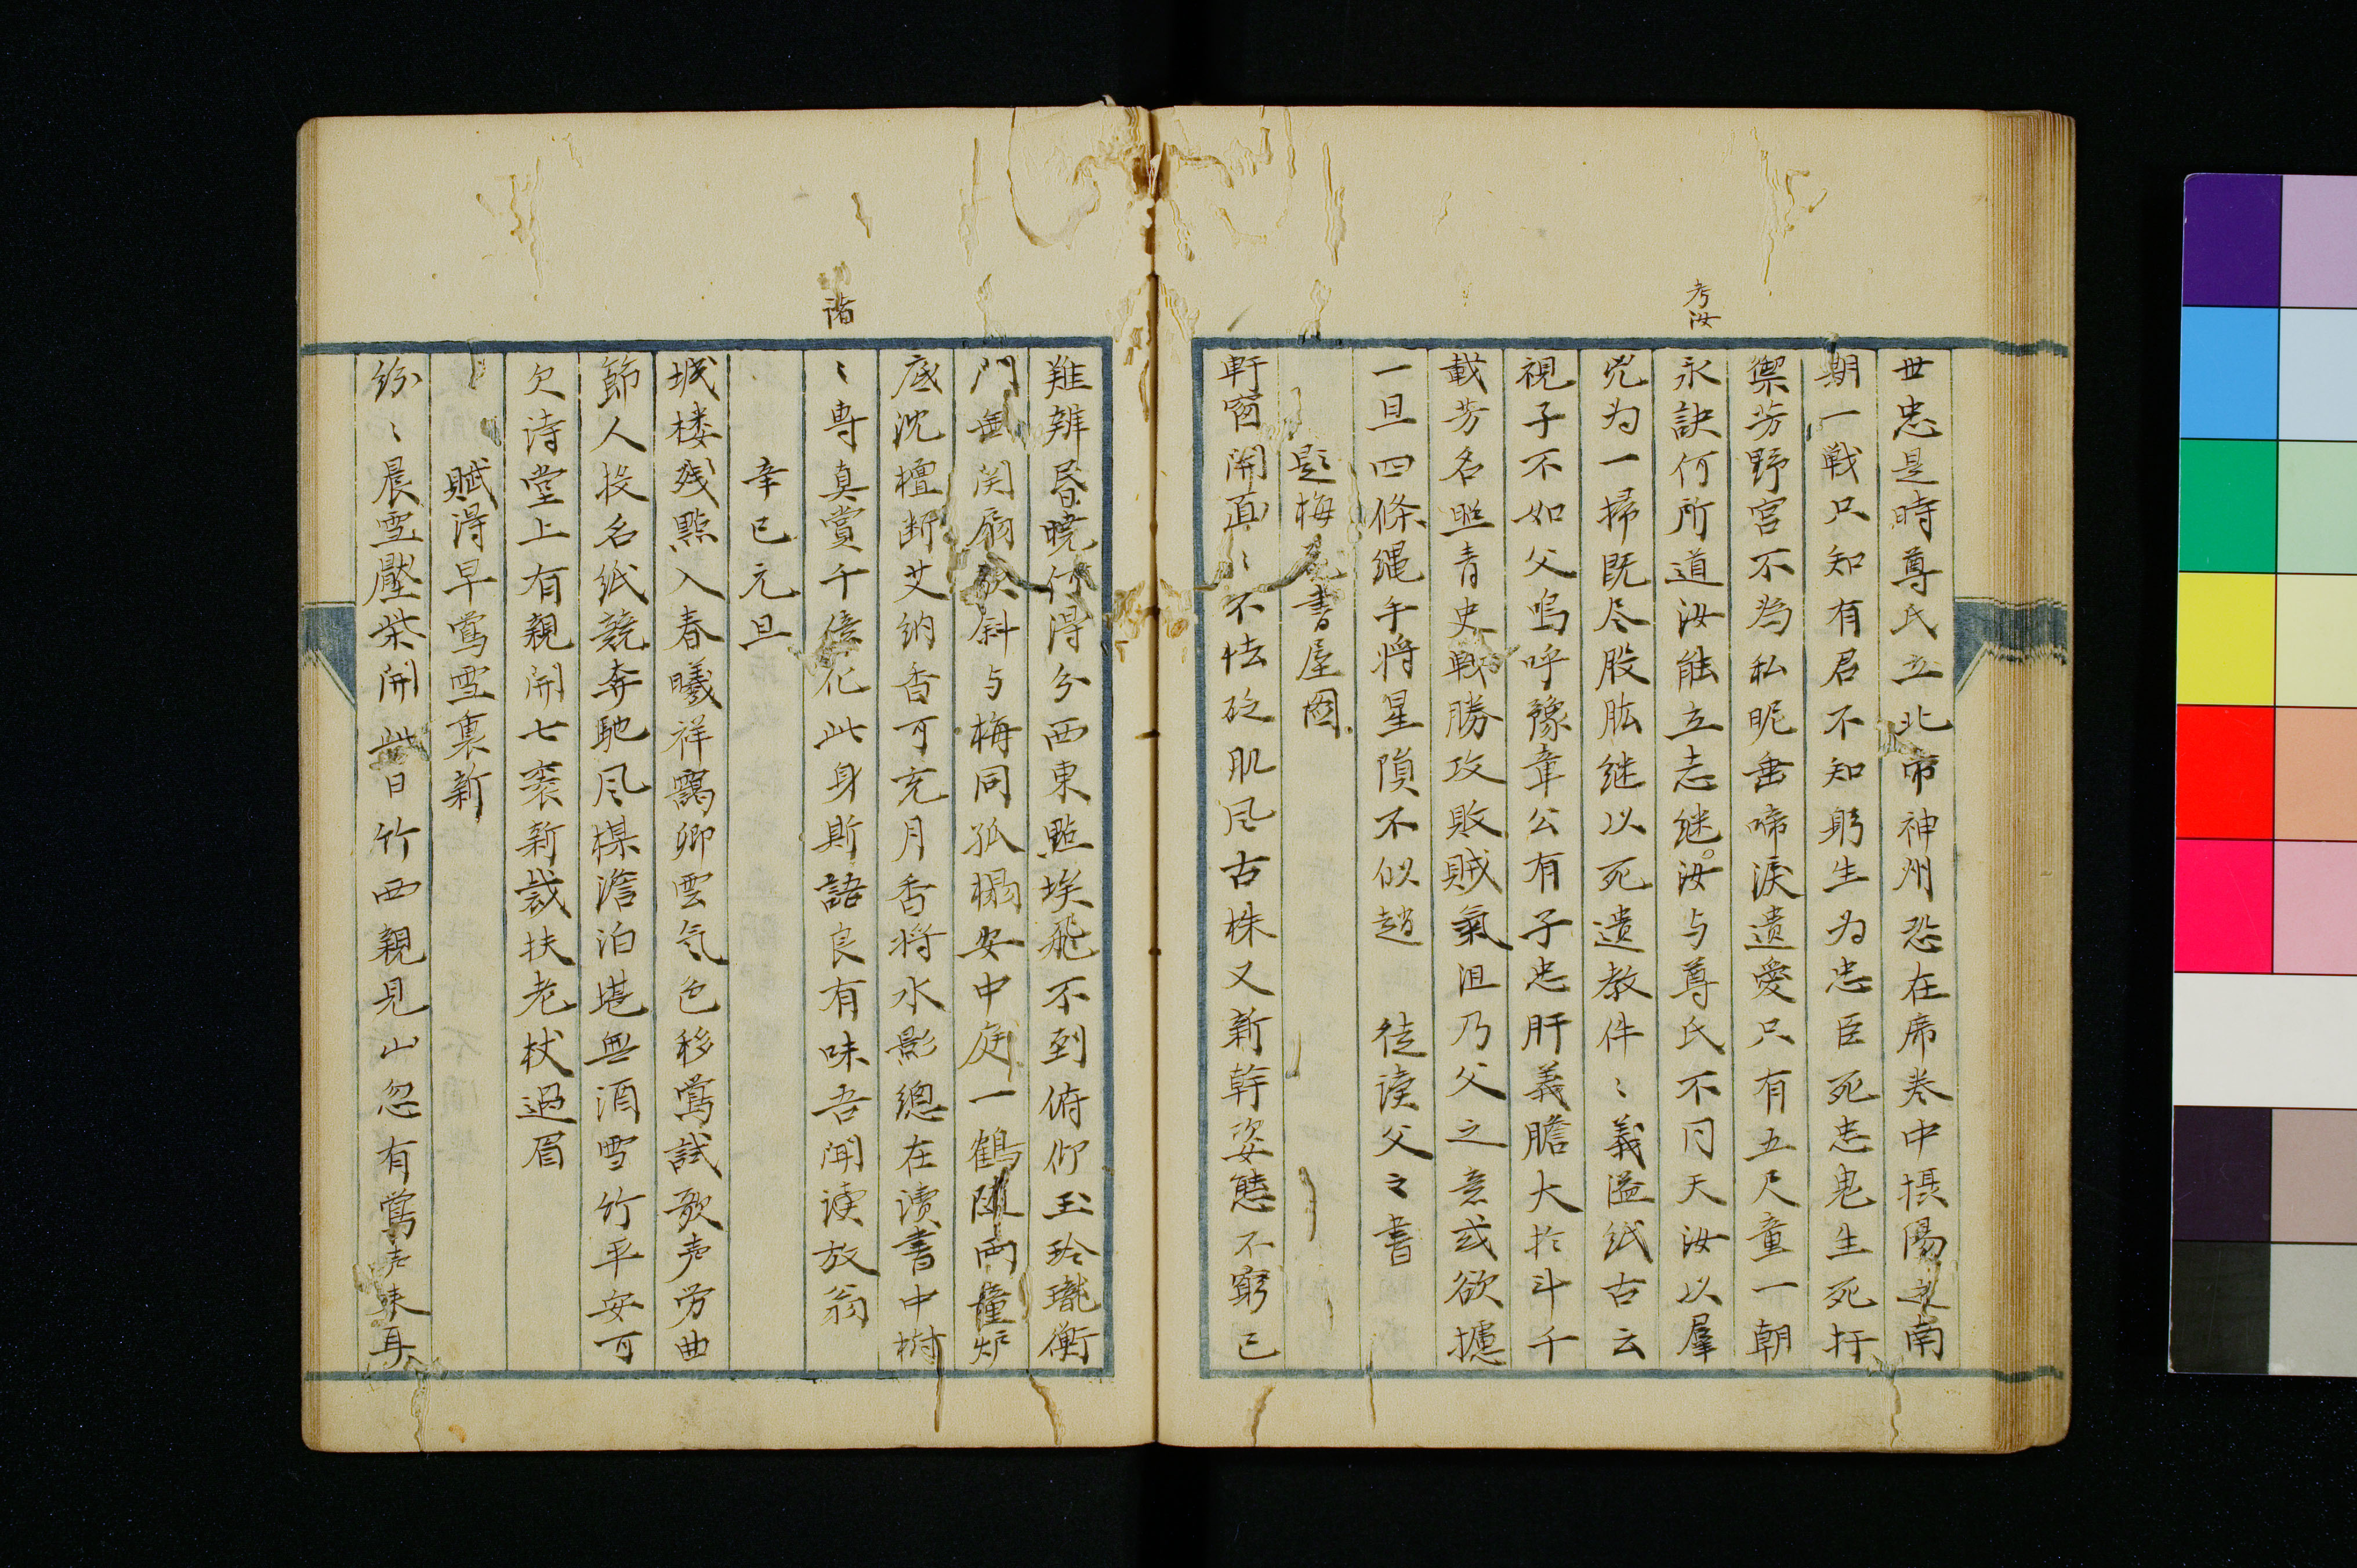 考汝
世忠是時尊氏立北帝神州恐在席卷中摂陽之南
期一戦只知有君不知躬生为忠臣死忠鬼生死扞
禦芳野宮不為私昵垂啼涙遺愛只有五尺童一朝
永訣何所道汝能立志継汝与尊氏不同天汝以羣
児为一掃既尽股肱継以死遺教件〻義溢紙古云
視子不如父嗚呼豫章公有子忠肝義膽大於斗千
載芳名照青史戦勝攻敗賊氣沮乃父之意或欲攄
一旦四條縄手将星隕不似趙 徒読父之書
題梅花書屋圖
軒窗開直〻不怯砭肌风古株又新幹姿態不窮已
諧
難辨昏暁何得分西東點埃飛不到俯仰玉玲瓏衡
門無関扇欹斜与梅同孤榻安中庭一鶴随両童炉
底沈檀断艾納香可充月香将水影總在讀書中樹
〻専真賞千億化此身斯語良有味吾闻读放翁
辛巳元旦
城楼残點入春曦祥靄卿雲気色移鶯試歌声労曲
節人投名紙競奔馳风楳澹泊堪無酒雪竹平安可
欠诗堂上有親開七褒新裁扶老杖過眉
賦得早鶯雪裏新
紛〻晨雪壓柴開此日竹西親見山忽有鶯声来耳